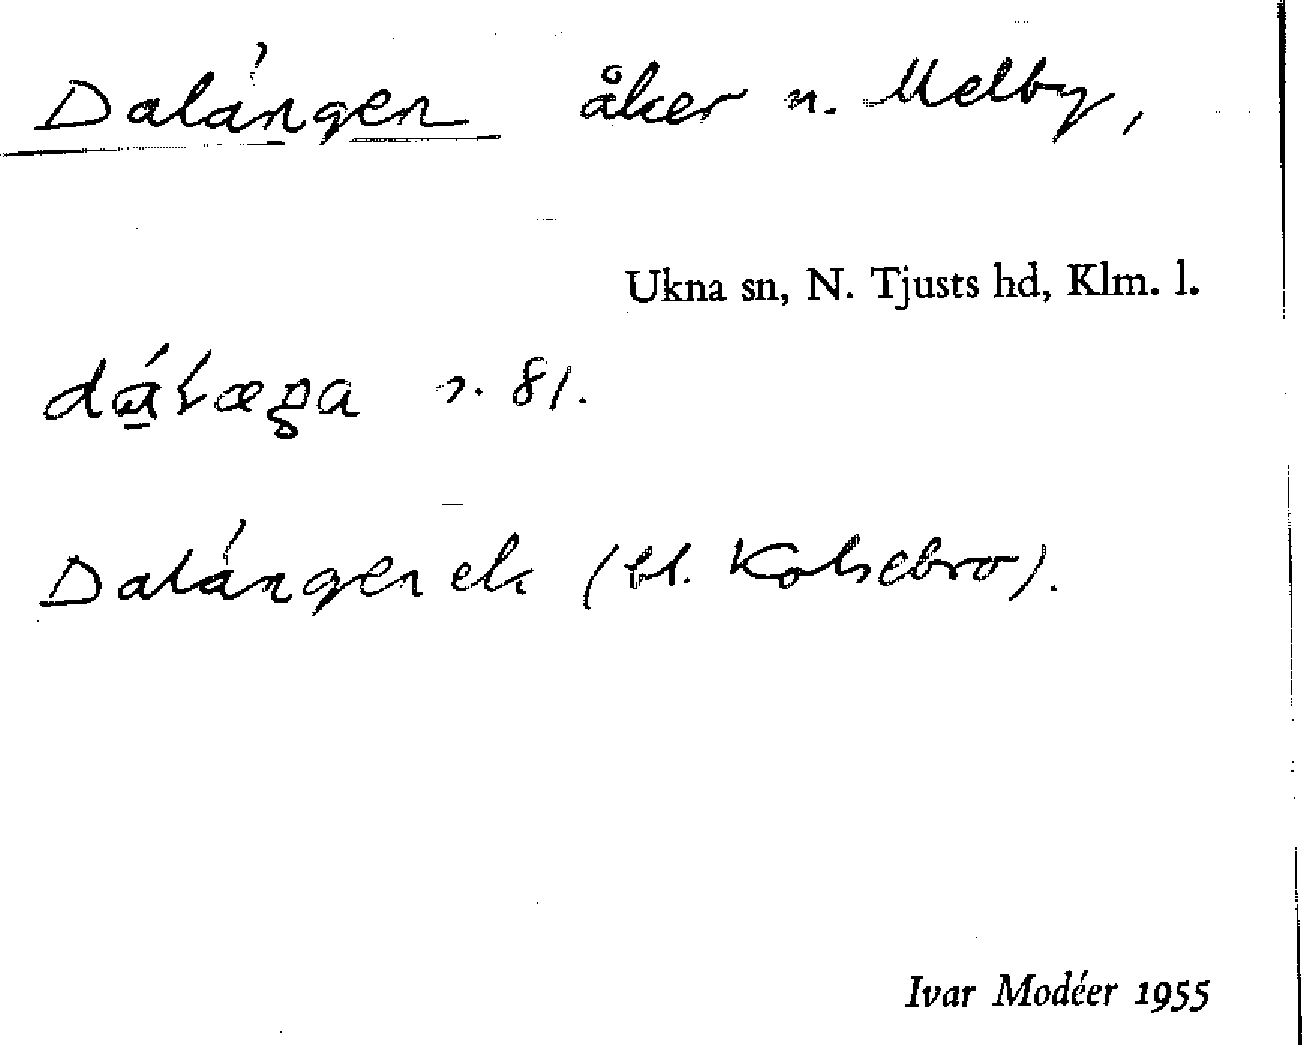 Dalángen åker n. Melby,
Ukna sn, N. Tjusts hd, Klm. l.
dálæŋa s. 81.
Dalángen ek (bl. Kolsebro).
Ivar Modéer 1955